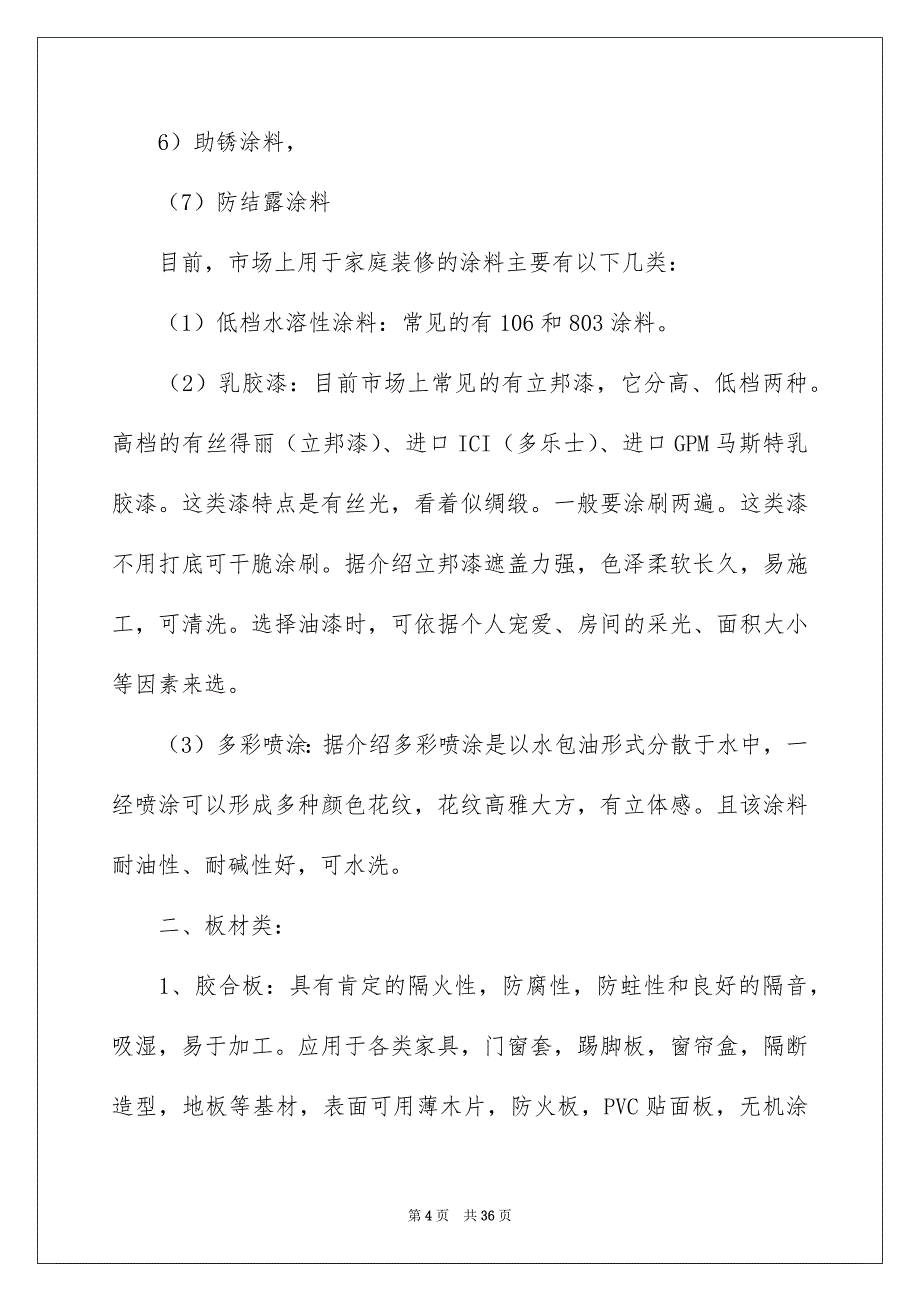 6）助锈涂料，
（7）防结露涂料
目前，市场上用于家庭装修的涂料主要有以下几类：
（1）低档水溶性涂料：常见的有 106 和 803 涂料。
（2）乳胶漆：目前市场上常见的有立邦漆，它分高、低档两种。
高档的有丝得丽（立邦漆）、进口 ICI（多乐士）、进口 GPM 马斯特乳
胶漆。这类漆特点是有丝光，看着似绸缎。一般要涂刷两遍。这类漆
不用打底可干脆涂刷。据介绍立邦漆遮盖力强，色泽柔软长久，易施
工，可清洗。选择油漆时，可依据个人宠爱、房间的采光、面积大小
等因素来选。
（3）多彩喷涂：据介绍多彩喷涂是以水包油形式分散于水中，一
经喷涂可以形成多种颜色花纹，花纹高雅大方，有立体感。且该涂料
耐油性、耐碱性好，可水洗。
二、板材类：
1、胶合板：具有肯定的隔火性，防腐性，防蛀性和良好的隔音，
吸湿，易于加工。应用于各类家具，门窗套，踢脚板，窗帘盒，隔断
造型，地板等基材，表面可用薄木片，防火板，PVC 贴面板，无机涂
第 4 页 共 36 页